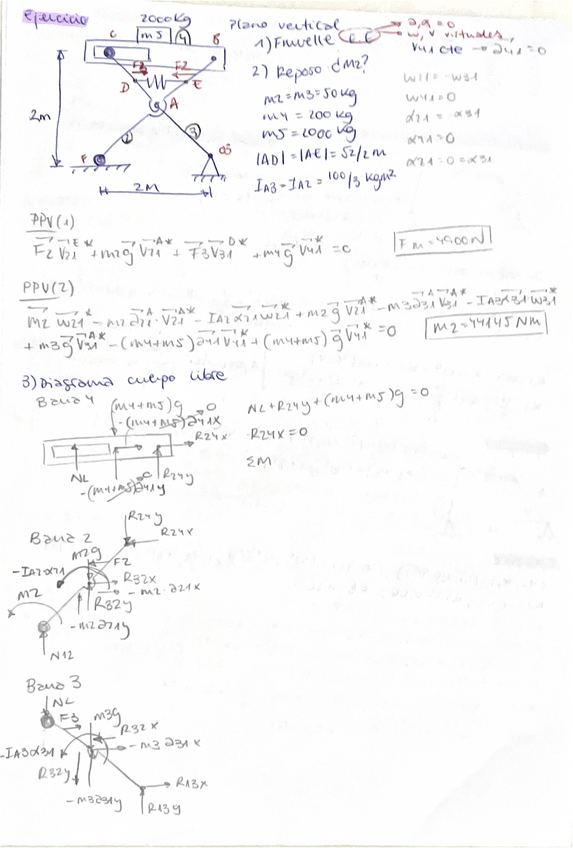 Ejercicio
2000kg
m5 4
C
B
F3 F2
D
E
A
2
3
O3
F
2m
2M
Plano vertical
1) Fmuelle
a, α = 0
w, v virtuales,
v41 cte → a41 = 0
2) Reposo ¿M2?
m2=m3=50kg
m4 = 200 kg
m5 = 2000 kg
|AD| = |AE| = √2/2m
IA3 = IA2 = 100/3 kgm²
w21 = -w31
w41=0
α21 = -α31
α41=0
α21=0=α31
PPV(1)
F2 V21^E* + m2g V21^A* + F3V31^D* + m4g V41^* = 0
Fm = 4900N
PPV(2)
m2 w21^* - m2 a21^A · V21^A* - IA2 α21 w21^* + m2 g V21^A* - m3 a31^A V31^A* - IA3 α31 w31^*
+ m3g V31^A* - (m4+m5) a41 V41^* + (m4+m5) g V41^* = 0
M2 = 44145 Nm
3) Diagrama cuerpo libre
Barra 4
(m4+m5)g
0
-(m4+m5)a41x
R24X
NC
R24y
-(m4+m5)a41y
NC+R24y+(m4+m5)g = 0
R24X=0
ΣM
Barra 2
R24y
R24x
m2g
F2
-IA2α21
R32X
-m2·a21x
M2
R32y
-m2a21y
N12
Barra 3
NC
F3
m3g
R32X
-m3a31x
-IA3α31
R32y
-m3a31y
R13X
R13y